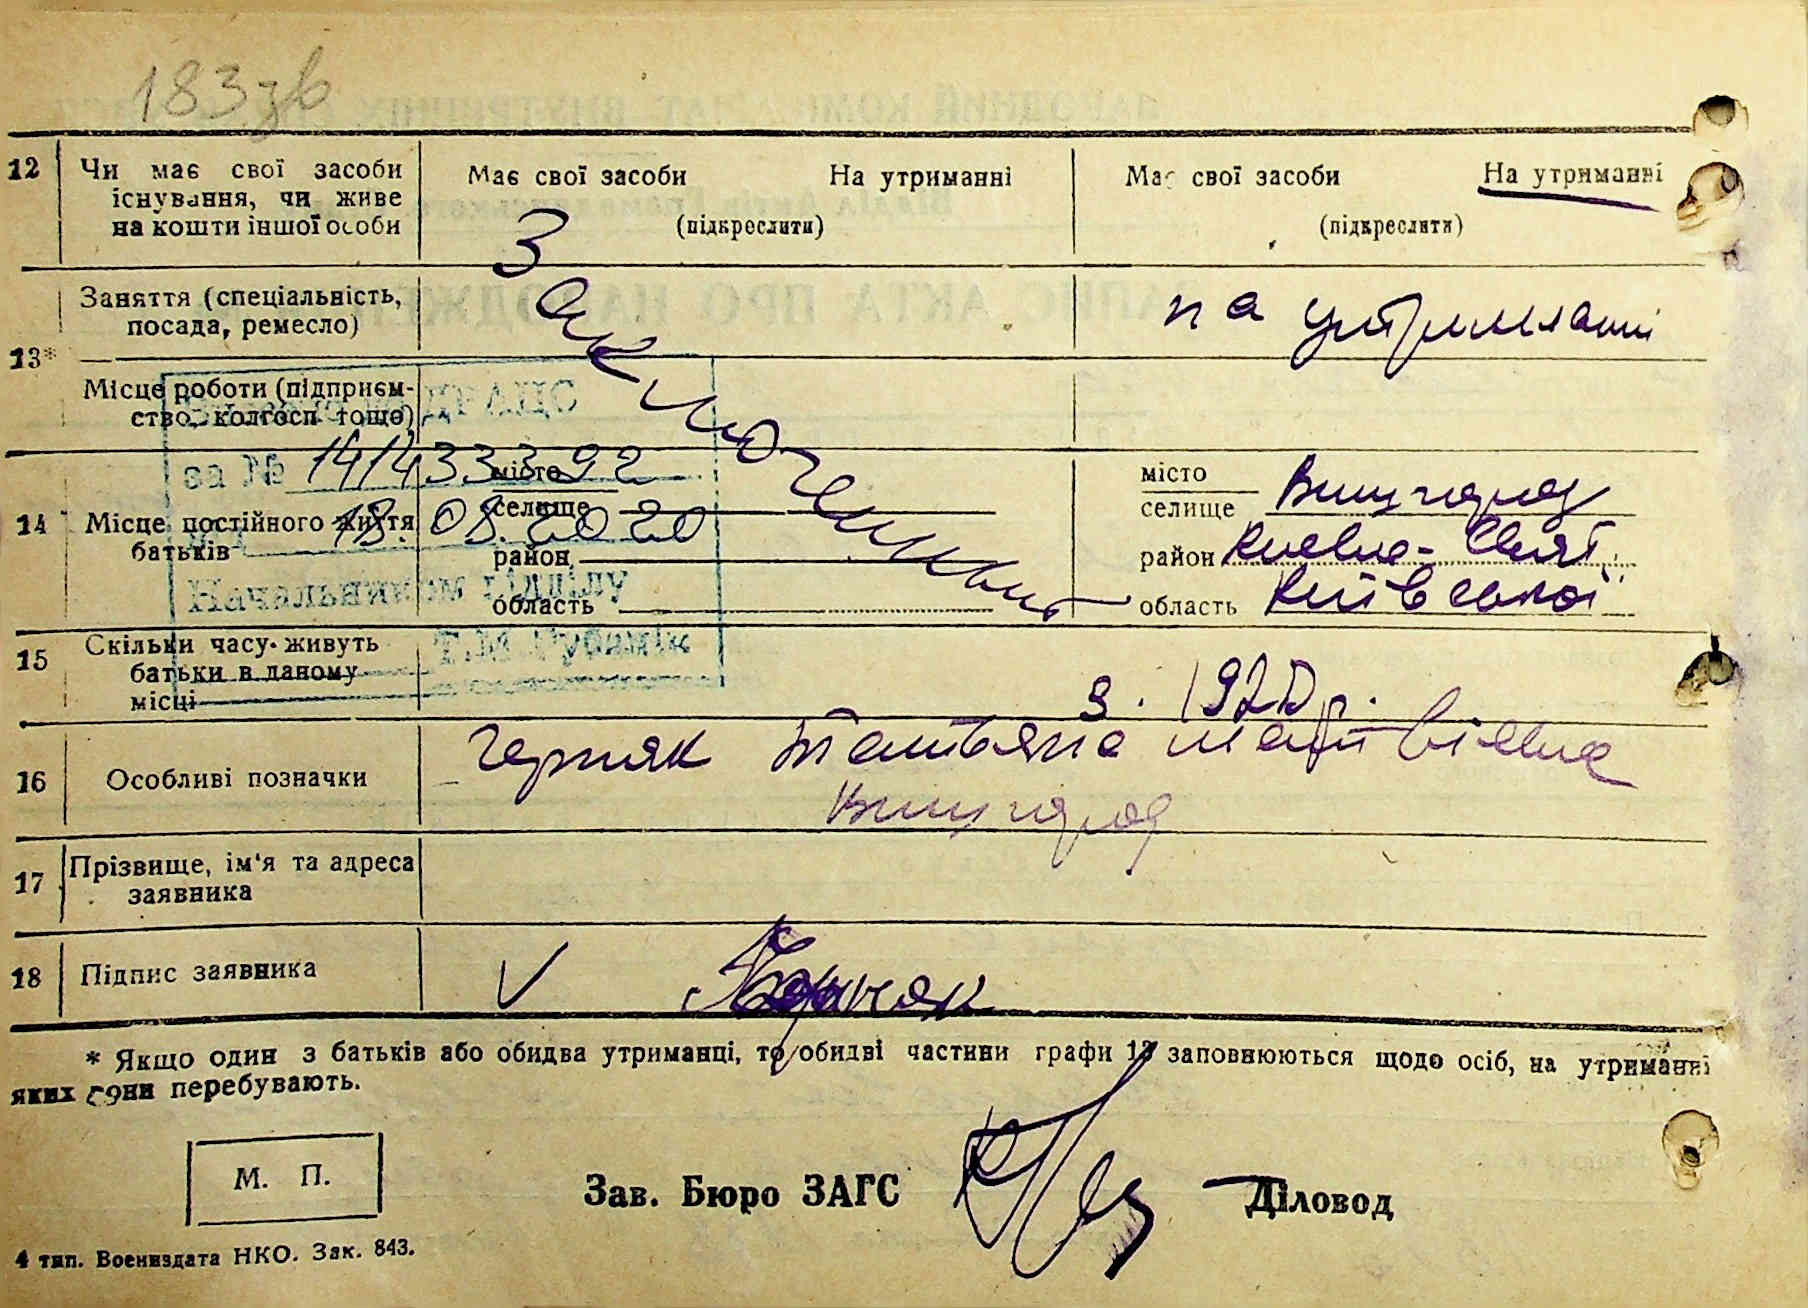 183зв
12 Чи має свої засоби існування, чи живе на кошти іншої особи
Має свої засоби На утриманні
(підкреслити)
Має свої засоби На утриманні
(підкреслити)
13* Заняття (спеціальність, посада, ремесло)
на утриманні
Місце роботи (підприємство, колгосп тощо)
за № 14/4333392
18.08.2020
14 Місце постійного життя батьків
місто
селище
район
область
місто
селище Вишгород
район Києво-Свят.
область Київської
15 Скільки часу живуть батьки в даному місці
з. 1920 р.
16 Особливі позначки
Черняк Татьяна
Вишгород
17 Прізвище, ім'я та адреса заявника
18 Підпис заявника
V Черняк
* Якщо один з батьків або обидва утриманці, то обидві частини графи 13 заповнюються щодо осіб, на утриманні
яких вони перебувають.
М. П.
Зав. Бюро ЗАГС
Діловод
4 тип. Воениздата НКО. Зак. 843.